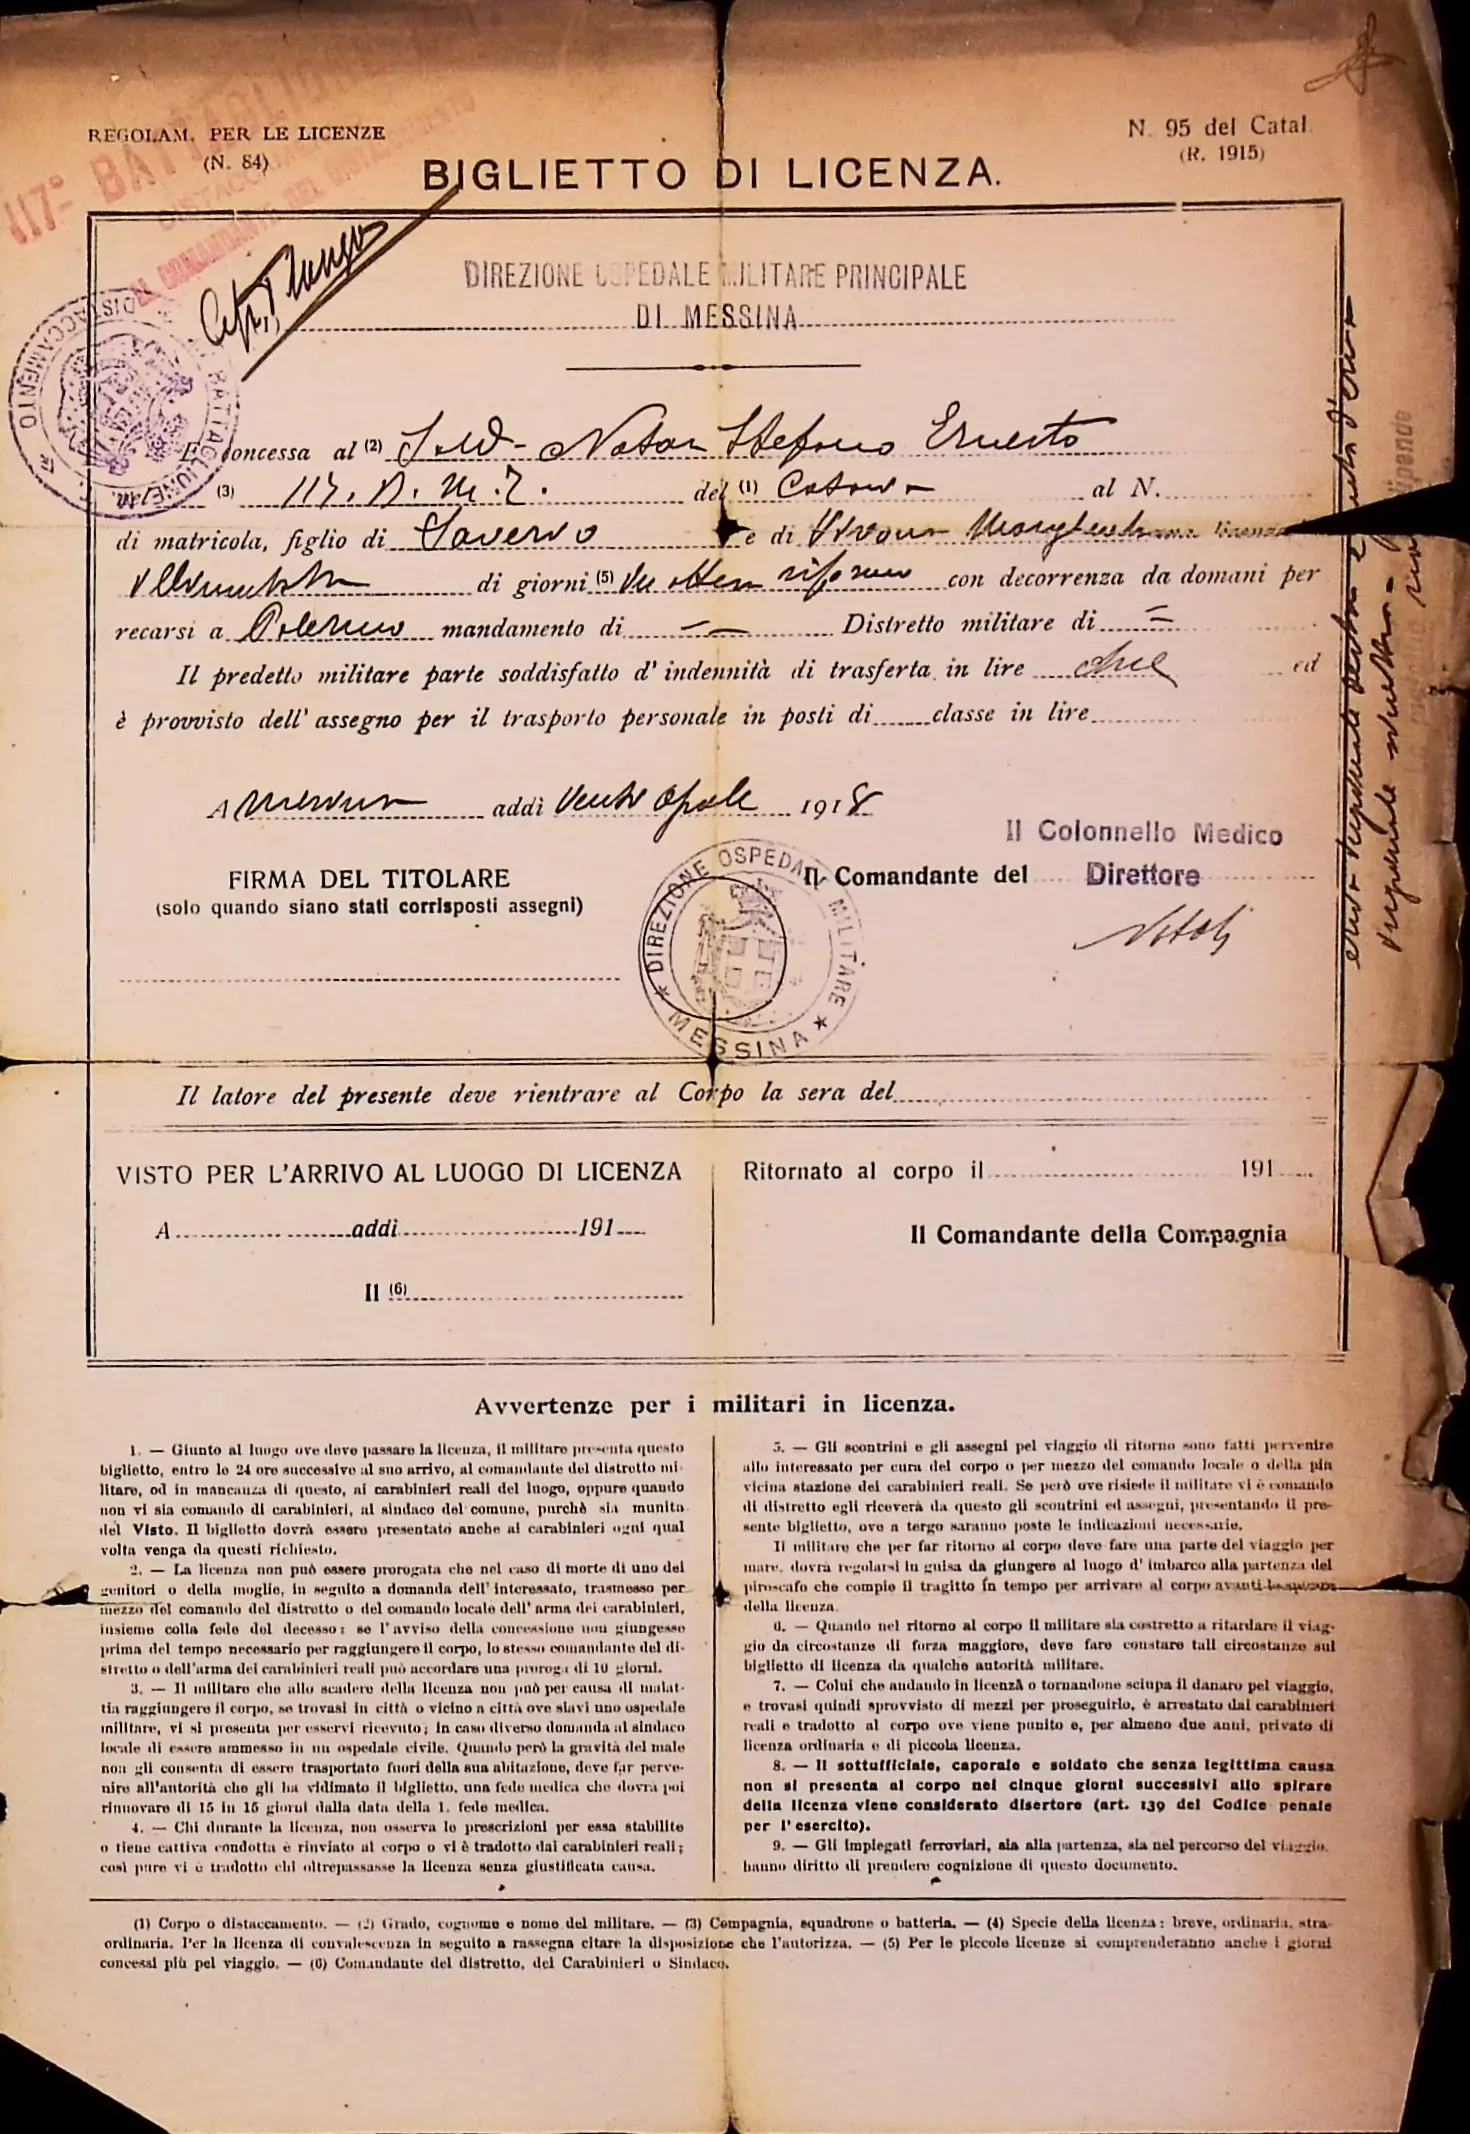 REGOLAM. PER LE LICENZE
(N. 84)
N. 95 del Catal.
(R. 1915)
BIGLIETTO DI LICENZA.
117º BATTAGLIONE
DISTACCAMENTO
IL COMANDANTE DEL DISTACCAMENTO
DIREZIONE OSPEDALE MILITARE PRINCIPALE
(1) DI MESSINA
È concessa al (2) Sold- Notar Stefano Ernesto
(3) 117. B. M. T. del (1) al N.
di matricola, figlio di Saverio e di Vivona Margherita una licenza
di giorni (5) con decorrenza da domani per
recarsi a Palermo mandamento di — Distretto militare di =
Il predetto militare parte soddisfatto d' indennità di trasferta in lire ed
è provvisto dell' assegno per il trasporto personale in posti di classe in lire
A Messina addì venti Aprile 1918
Il Colonnello Medico
FIRMA DEL TITOLARE
Il Comandante del Direttore
(solo quando siano stati corrisposti assegni)
DIREZIONE OSPEDALE MILITARE
MESSINA
Il latore del presente deve rientrare al Corpo la sera del
VISTO PER L'ARRIVO AL LUOGO DI LICENZA
A addì 191
Il (6)
Ritornato al corpo il 191
Il Comandante della Compagnia
Avvertenze per i militari in licenza.
1. — Giunto al luogo ove deve passare la licenza, il militare presenta questo
biglietto, entro le 24 ore successive al suo arrivo, al comandante del distretto mi-
litare, od in mancanza di questo, ai carabinieri reali del luogo, oppure quando
non vi sia comando di carabinieri, al sindaco del comune, purchè sia munita
del Visto. Il biglietto dovrà essere presentato anche ai carabinieri ogni qual
volta venga da questi richiesto.
2. — La licenza non può essere prorogata che nel caso di morte di uno dei
genitori o della moglie, in seguito a domanda dell' interessato, trasmesso per
mezzo del comando del distretto o del comando locale dell' arma dei carabinieri,
insieme colla fede del decesso: se l'avviso della concessione non giungesse
prima del tempo necessario per raggiungere il corpo, lo stesso comandante del di-
stretto o dell'arma dei carabinieri reali può accordare una proroga di 10 giorni.
3. — Il militare che allo scadere della licenza non può per causa di malat-
tia raggiungere il corpo, se trovasi in città o vicino a città ove siavi uno ospedale
militare, vi si presenta per esservi ricevuto; in caso diverso domanda al sindaco
locale di essere ammesso in un ospedale civile. Quando però la gravità del male
non gli consenta di essere trasportato fuori della sua abitazione, deve far perve-
nire all'autorità che gli ha vidimato il biglietto, una fede medica che dovrà poi
rinnovare di 15 in 15 giorni dalla data della 1. fede medica.
4. — Chi durante la licenza, non osserva le prescrizioni per essa stabilite
o tiene cattiva condotta è rinviato al corpo o vi è tradotto dai carabinieri reali;
così pure vi è tradotto chi oltrepassasse la licenza senza giustificata causa.
5. — Gli scontrini e gli assegni pel viaggio di ritorno sono fatti pervenire
allo interessato per cura del corpo o per mezzo del comando locale o della più
vicina stazione dei carabinieri reali. Se però ove risiede il militare vi è comando
di distretto egli riceverà da questo gli scontrini ed assegni, presentando il pre-
sente biglietto, ove a tergo saranno poste le indicazioni necessarie.
Il militare che per far ritorno al corpo deve fare una parte del viaggio per
mare, dovrà regolarsi in guisa da giungere al luogo d' imbarco alla partenza del
piroscafo che compie il tragitto in tempo per arrivare al corpo avanti la scadenza
della licenza.
6. — Quando nel ritorno al corpo il militare sia costretto a ritardare il viag-
gio da circostanze di forza maggiore, deve fare constare tali circostanze sul
biglietto di licenza da qualche autorità militare.
7. — Colui che andando in licenza o tornandone sciupa il danaro pel viaggio,
e trovasi quindi sprovvisto di mezzi per proseguirlo, è arrestato dai carabinieri
reali e tradotto al corpo ove viene punito e, per almeno due anni, privato di
licenza ordinaria e di piccola licenza.
8. — Il sottufficiale, caporale o soldato che senza legittima causa
non si presenta al corpo nei cinque giorni successivi allo spirare
della licenza viene considerato disertore (art. 139 del Codice penale
per l' esercito).
9. — Gli impiegati ferroviari, sia alla partenza, sia nel percorso del viaggio,
hanno diritto di prendere cognizione di questo documento.
(1) Corpo o distaccamento. — (2) Grado, cognome e nome del militare. — (3) Compagnia, squadrone o batteria. — (4) Specie della licenza: breve, ordinaria, stra-
ordinaria. Per la licenza di convalescenza in seguito a rassegna citare la disposizione che l'autorizza. — (5) Per le piccole licenze si comprenderanno anche i giorni
concessi più pel viaggio. — (6) Comandante del distretto, dei Carabinieri o Sindaco.